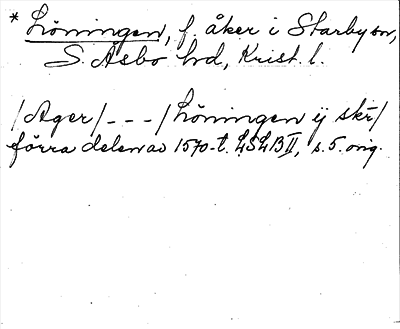 * Löningen, f. åker i Starby sn,
S. Åsbo hd, Krist. l.
/Ager/ - - - /Löningen ij skr/
förra delen av 1570-t. LSLB II, s. 5. orig.